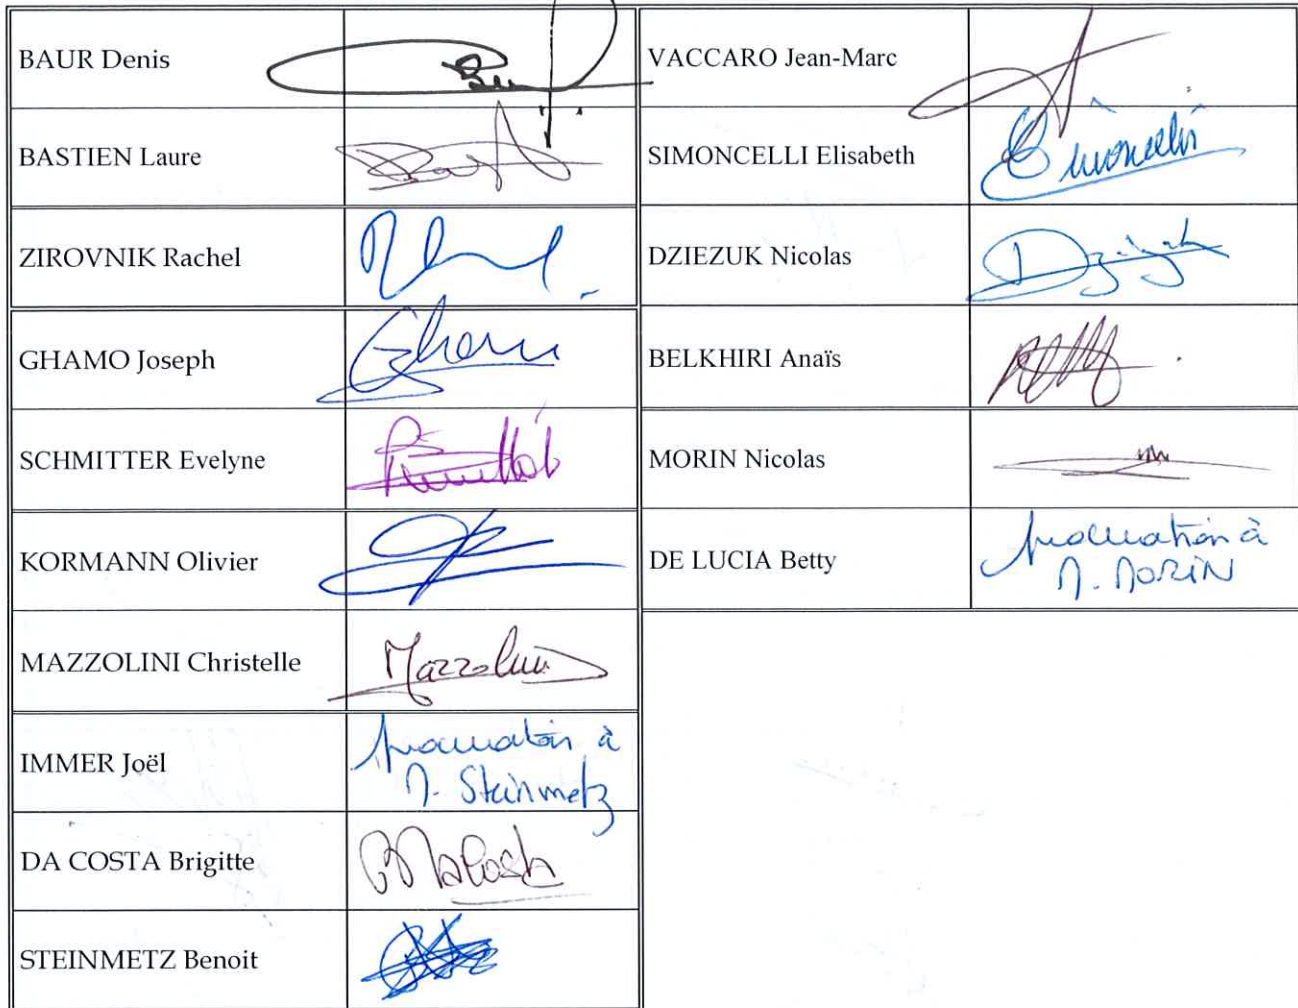 BAUR Denis
BASTIEN Laure
ZIROVNIK Rachel
GHAMO Joseph
SCHMITTER Evelyne
KORMANN Olivier
MAZZOLINI Christelle
Mazzolini
IMMER Joël
procuration à
M. Steinmetz
DA COSTA Brigitte
STEINMETZ Benoit
VACCARO Jean-Marc
SIMONCELLI Elisabeth
Simoncelli
DZIEZUK Nicolas
BELKHIRI Anaïs
MORIN Nicolas
DE LUCIA Betty
procuration à
M. MORIN